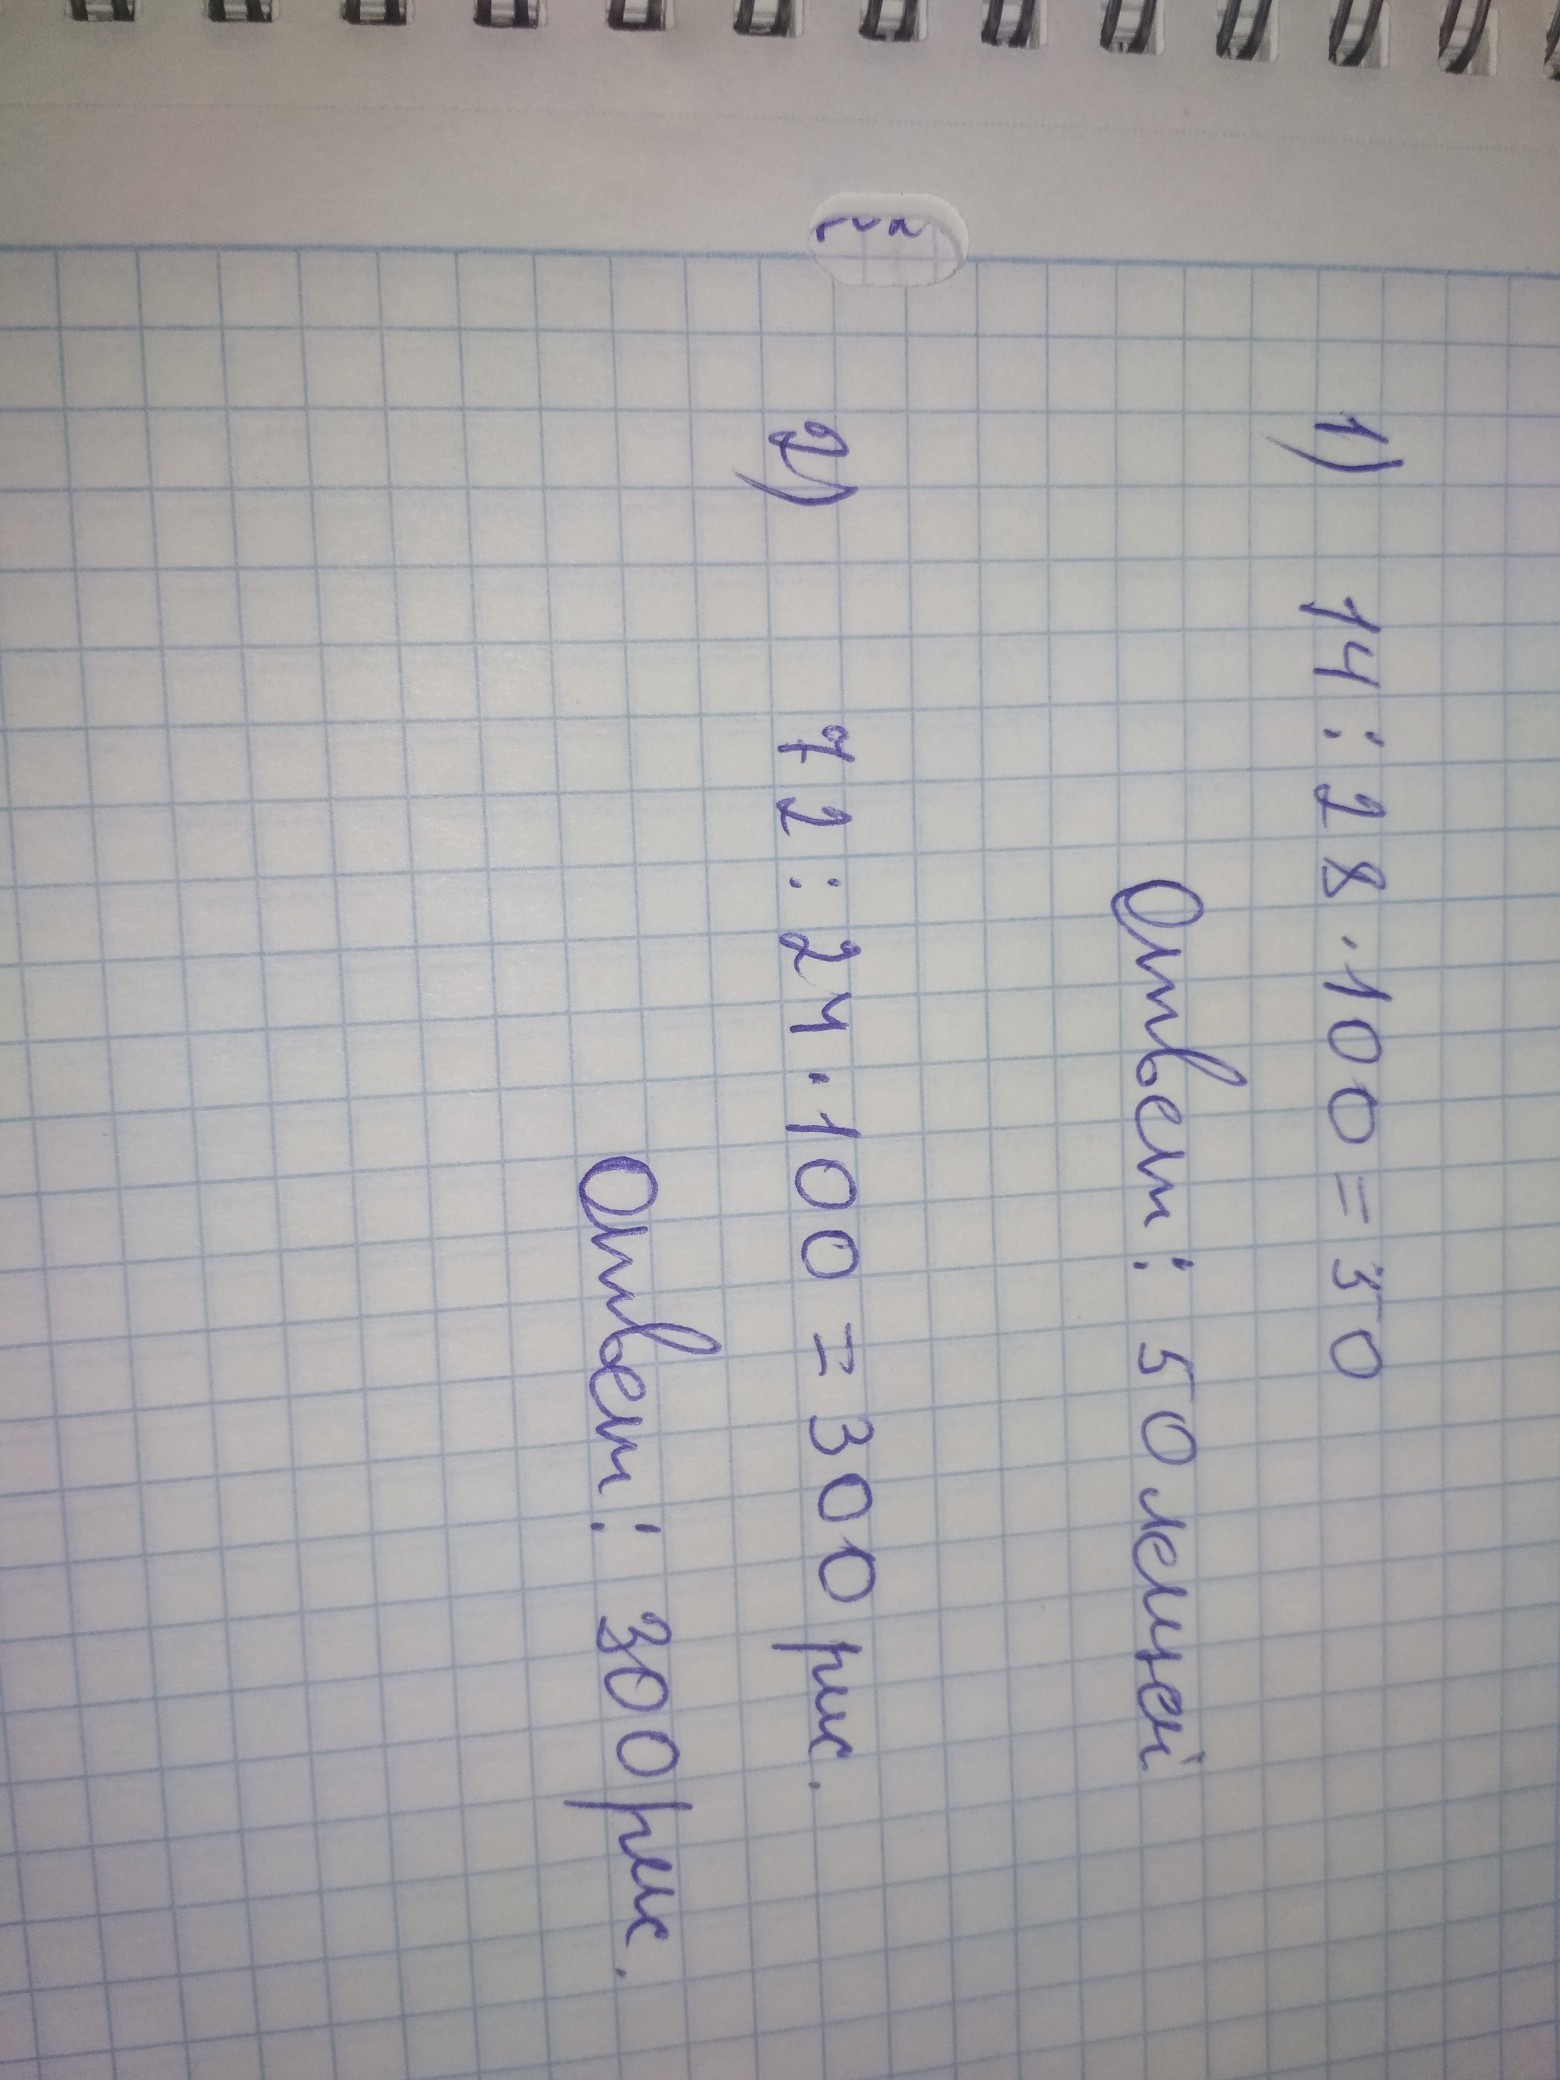 1) 14 : 28 · 100 = 50
Ответ: 50 лещей
2) 72 : 24 · 100 = 300 рис.
Ответ: 300 рис.